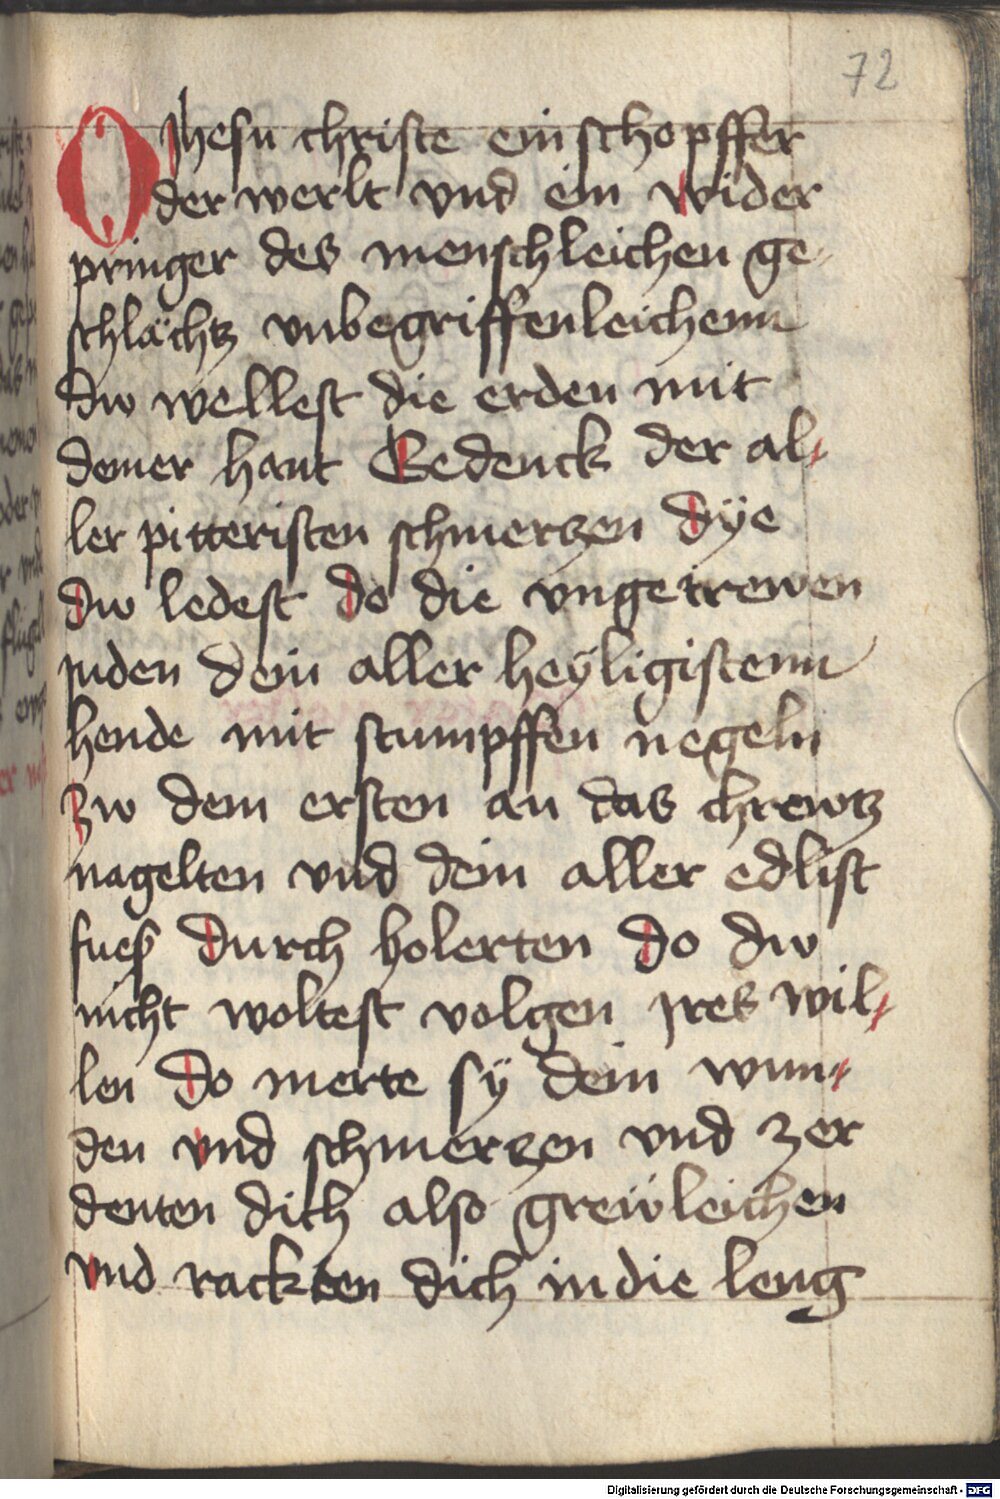 72
O Jhesu christe ein schopffer
der werlt vnd ein wider
pringer des menschleichen ge-
schlächtz vnbegriffenleichenn
Dw wellest die erden mit
deiner hant Gedenck der al-
ler pitteristen schmerczen dÿe
Dw ledest do die vngetrewen
juden dein aller heÿligistenn
hende mit stumpffen negeln
zw dem ersten an das chrewtz
nagelten vnd dein aller edlist
fueß durch holerten do dw
nicht woltest volgen jres wil-
len do merte sÿ dein wun-
den vnd schmerczen vnd zer
denten dich also grewleichen
vnd rackten dich in die leng
Digitalisierung gefördert durch die Deutsche Forschungsgemeinschaft - DFG